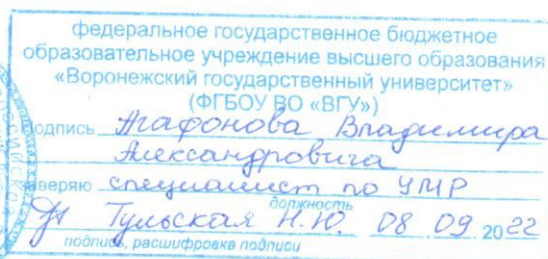 федеральное государственное бюджетное
образовательное учреждение высшего образования
«Воронежский государственный университет»
(ФГБОУ ВО «ВГУ»)
одпись Агафонова Владимира
Александровича
аверяю специалист по УМР
должность
Тульская Н.Ю. 08 09 2022
подпись, расшифровка подписи